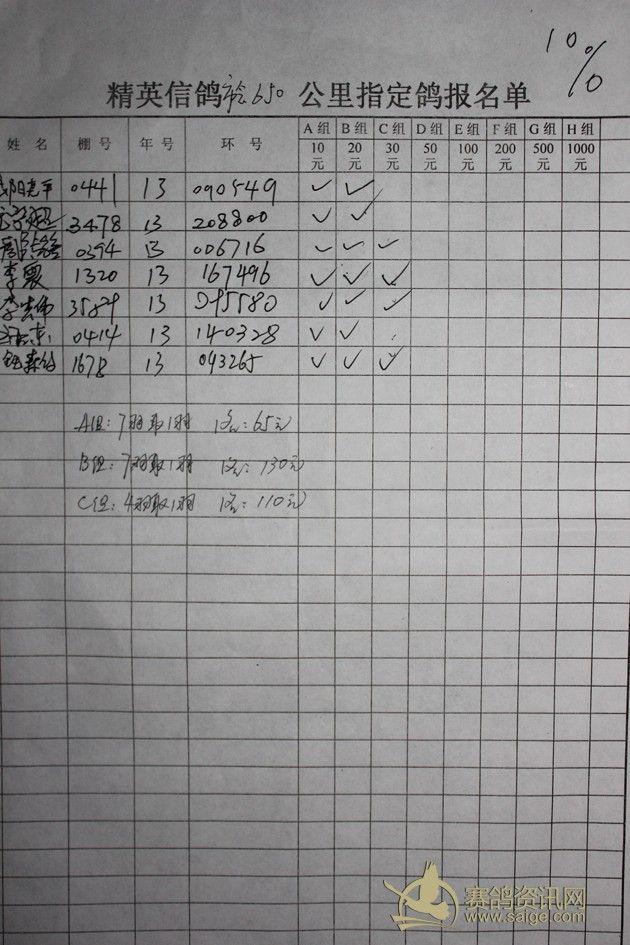 10%
精英信鸽 650 公里指定鸽报名单
姓名 棚号 年号 环号 A组 B组 C组 D组 E组 F组 G组 H组
10元 20元 30元 50元 100元 200元 500元 1000元
0441 13 090549 ✓ ✓
3478 13 208800 ✓ ✓
0394 13 006716 ✓ ✓ ✓
李震 1320 13 167496 ✓ ✓ ✓
13 ✓ ✓ ✓
0414 13 140328 ✓ ✓
1678 13 043265 ✓ ✓ ✓
A组: 7羽取1羽 65元
B组: 7羽取1羽 130元
C组: 4羽取1羽 110元
赛鸽资讯网
www.saige.com